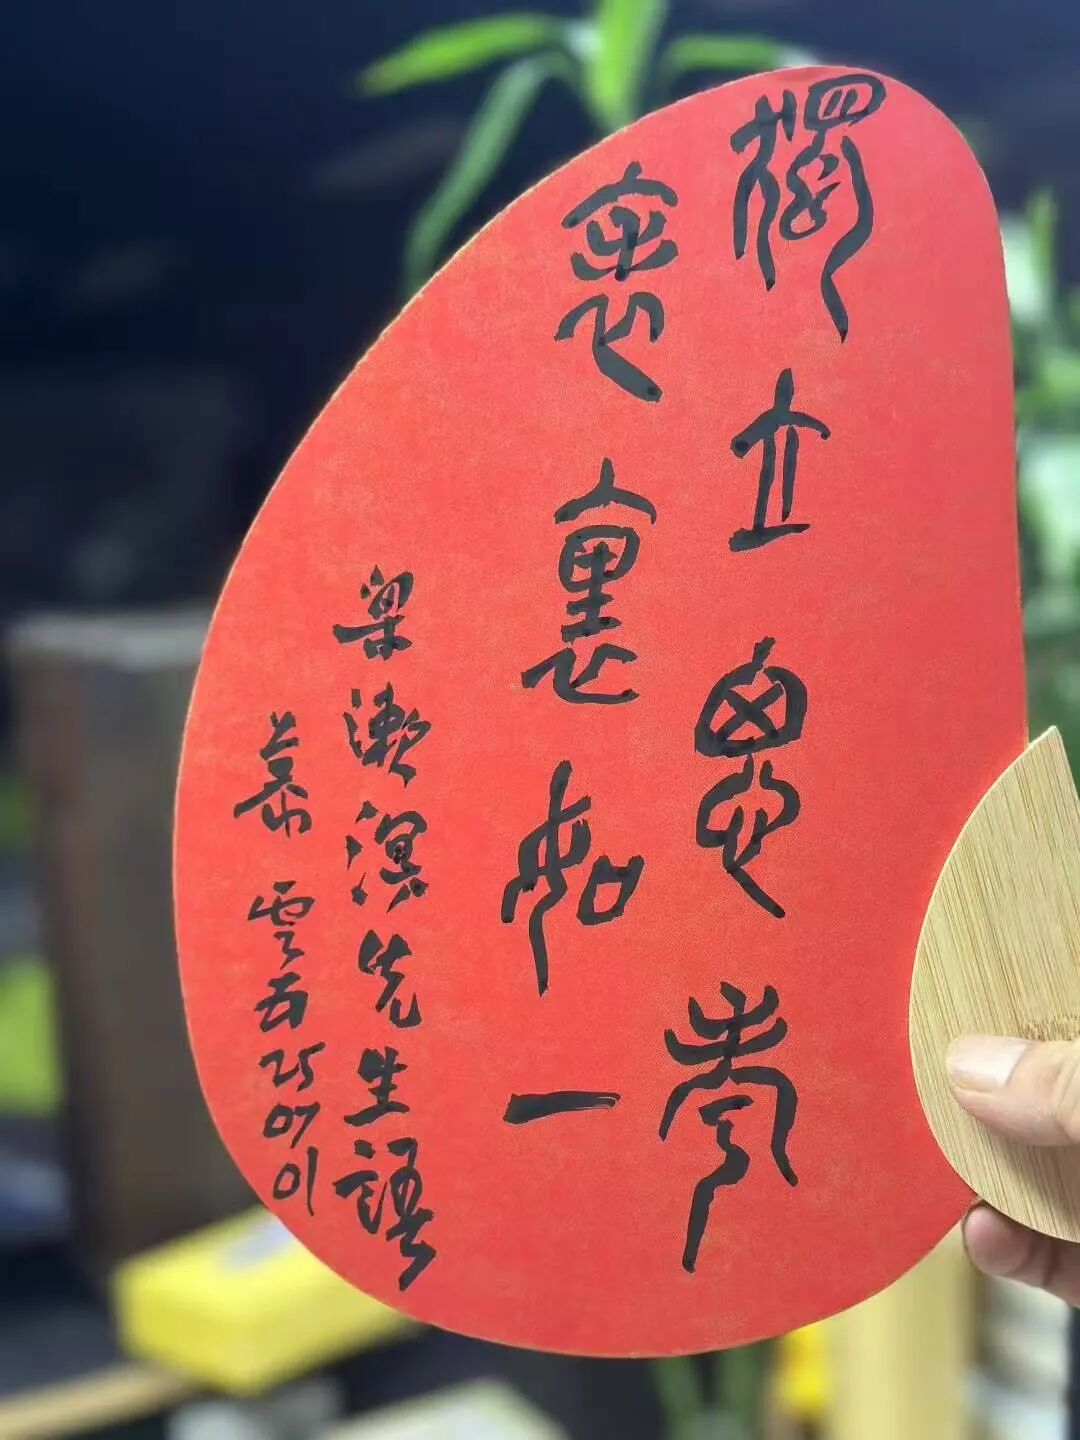 獨立思考
表裏如一
梁漱溟先生語
慕雲書
25
07
01